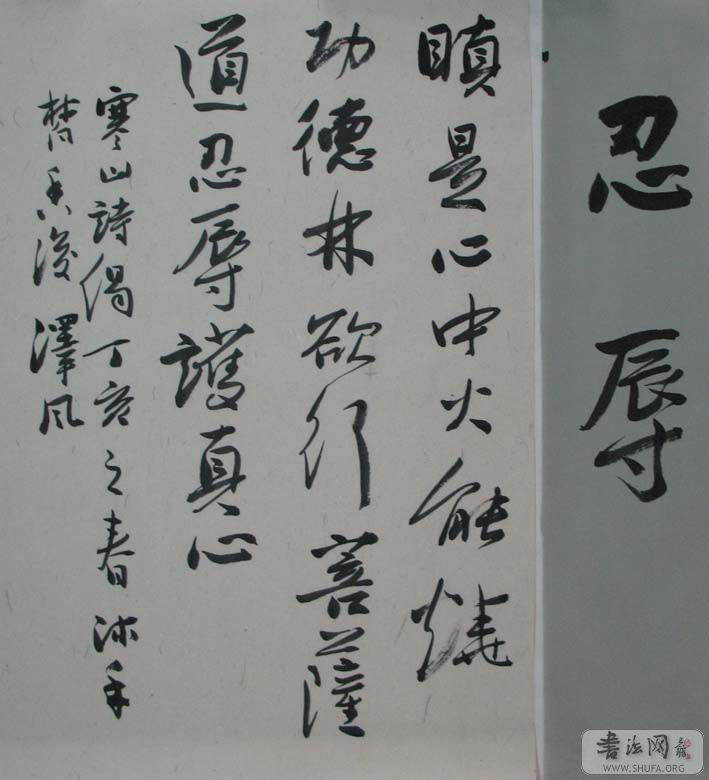 忍辱
瞋是心中火能燒
功德林欲行菩薩
道忍辱護真心
寒山詩偈丁亥之春沐手
焚香 澤风
書法网
WWW.SHUFA.ORG